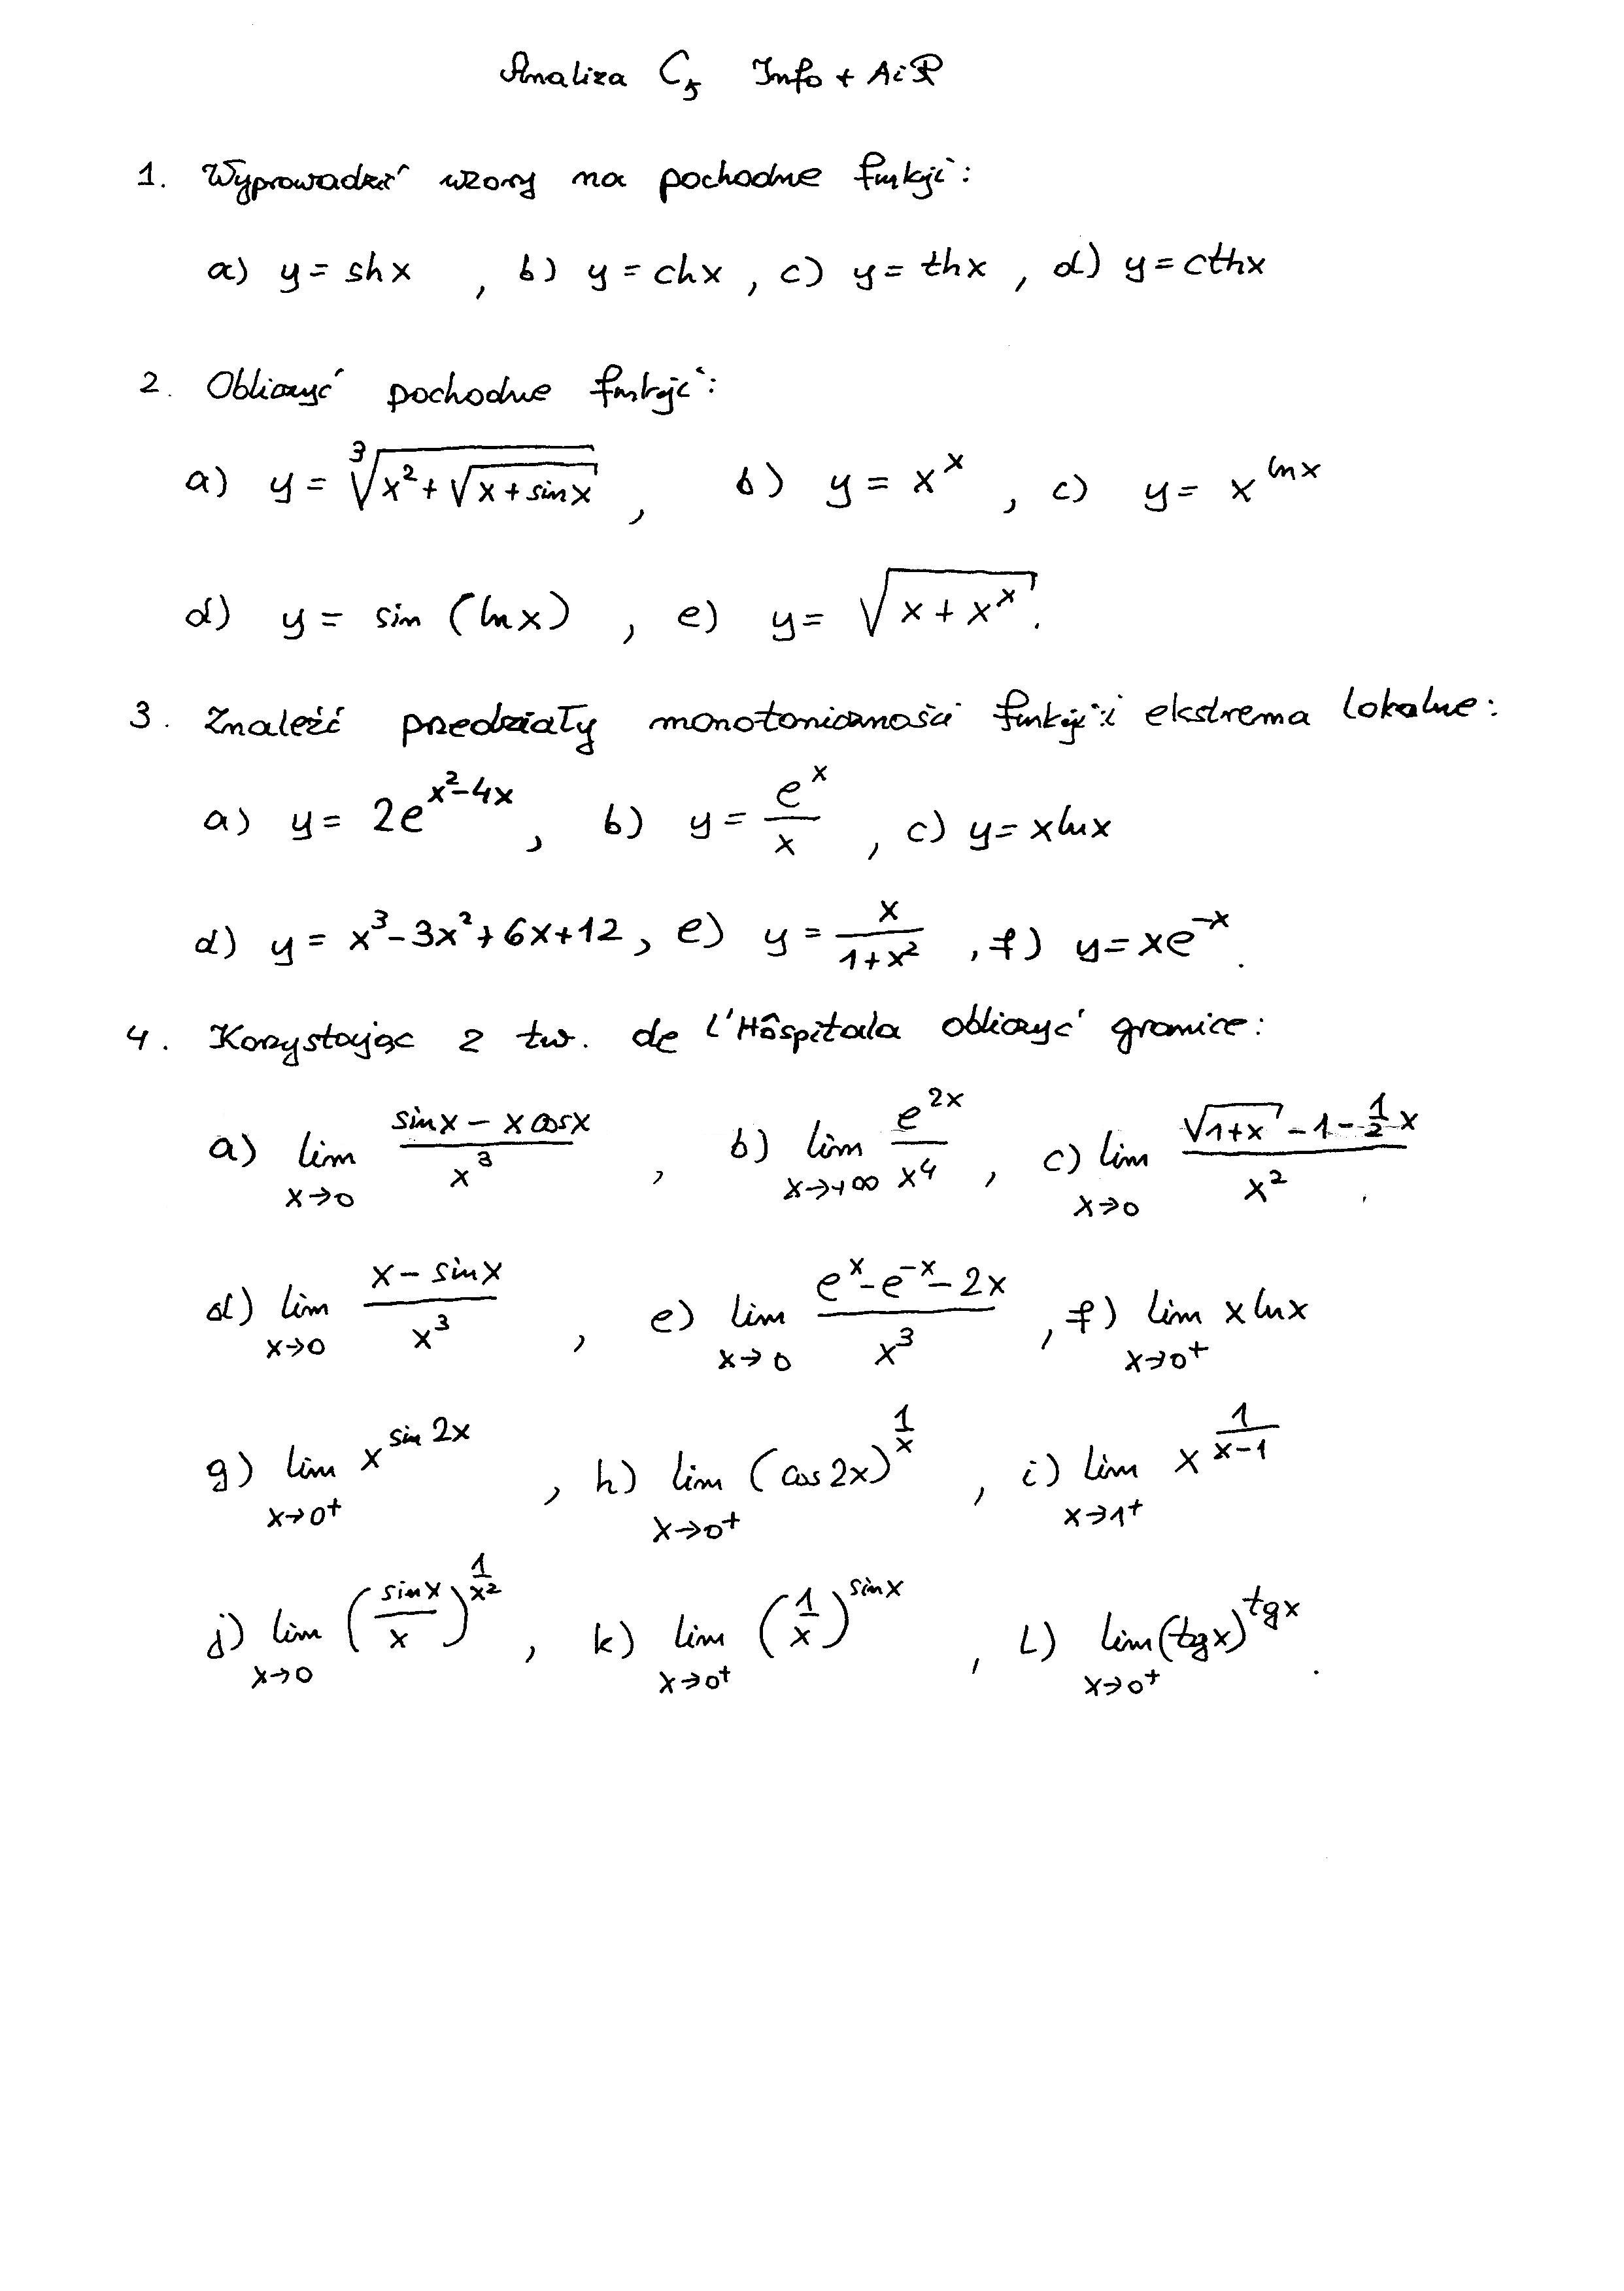 Analiza C5 Info + AiR
1. Wyprowadzić wzory na pochodne funkcji:
a) y = shx , b) y = chx , c) y = thx , d) y = cthx
2. Obliczyć pochodne funkcji:
a) y = ∛(x² + √(x + sinx)) , b) y = x^x , c) y = x^(lnx)
d) y = sin (lnx) , e) y = √(x + x^x) .
3. Znaleźć przedziały monotoniczności funkcji i ekstrema lokalne:
a) y = 2e^(x²-4x) , b) y = e^x / x , c) y = xlnx
d) y = x³ - 3x² + 6x + 12 , e) y = x / (1+x²) , f) y = xe^(-x) .
4. Korzystając z tw. de l'Hôspitala obliczyć granice:
a) lim x→0 (sinx - x cosx) / x³ , b) lim x→+∞ e^(2x) / x⁴ , c) lim x→0 (√(1+x) - 1 - ½x) / x² .
d) lim x→0 (x - sinx) / x³ , e) lim x→0 (e^x - e^(-x) - 2x) / x³ , f) lim x→0⁺ xlnx
g) lim x→0⁺ x^(sin 2x) , h) lim x→0⁺ (cos 2x)^(1/x) , i) lim x→1⁺ x^(1/(x-1))
j) lim x→0 (sinx / x)^(1/x²) , k) lim x→0⁺ (1/x)^(sinx) , l) lim x→0⁺ (tgx)^(tgx) .